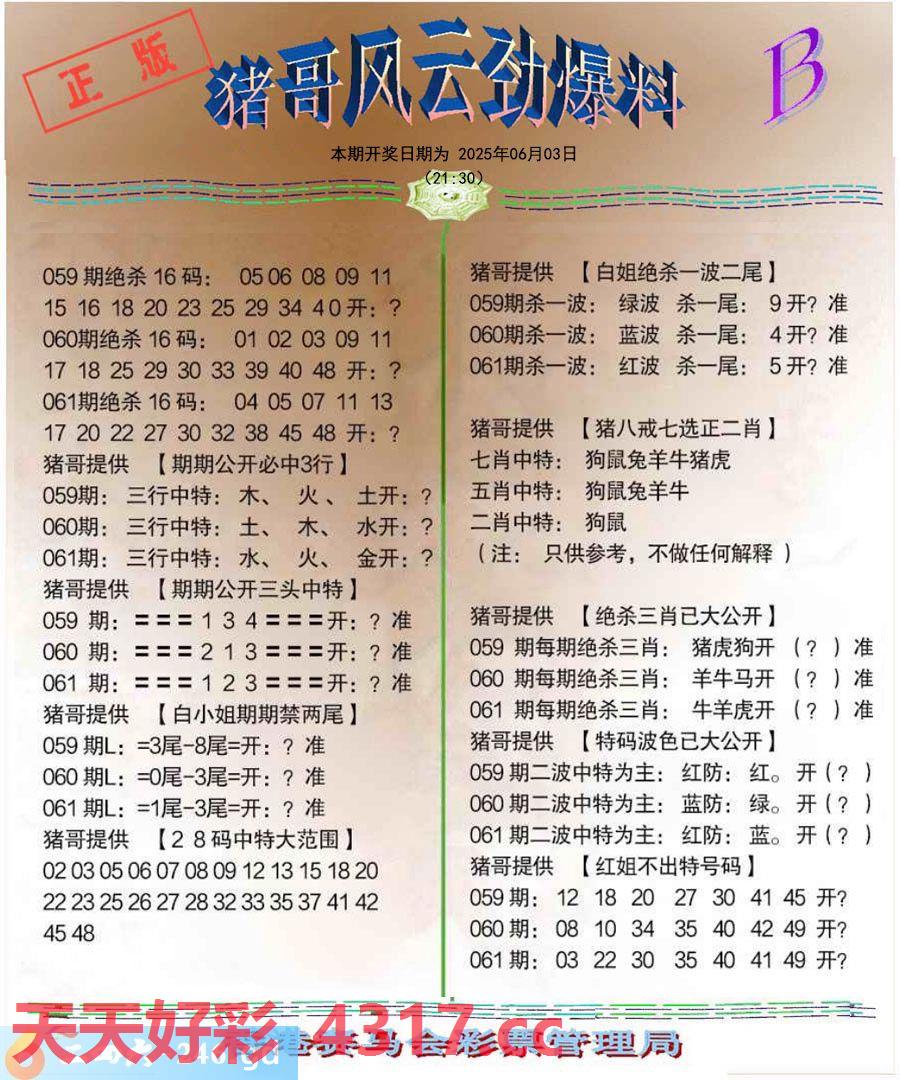 正版
猪哥风云劲爆料
B
本期开奖日期为 2025年06月03日
（21:30）
059 期绝杀 16 码： 05 06 08 09 11
15 16 18 20 23 25 29 34 4 0 开：？
060期绝杀 16 码： 01 02 03 09 11
17 18 25 29 30 33 39 40 48 开：？
061期绝杀 16 码： 04 05 07 11 13
17 20 22 27 30 32 38 45 48 开：？
猪哥提供 【期期公开必中3行】
059期： 三行中特： 木、 火 、 土开：？
060期： 三行中特： 土、 木、 水开：？
061期： 三行中特： 水、 火、 金开：？
猪哥提供 【期期公开三头中特】
059 期：＝＝＝ 1 3 4 ＝＝＝开：？准
060 期：＝＝＝ 2 1 3 ＝＝＝开：？准
061 期：＝＝＝ 1 2 3 ＝＝＝开：？准
猪哥提供 【白小姐期期禁两尾】
059 期L： =3尾-8尾=开：？准
060 期L： =0尾-3尾=开：？准
061 期L： =1尾-3尾=开：？准
猪哥提供 【2 8 码中特大范围】
02 03 05 06 07 08 09 12 13 15 18 20
22 23 25 26 27 28 32 33 35 37 41 42
45 48
猪哥提供 【白姐绝杀一波二尾】
059期杀一波： 绿波 杀一尾： 9 开？准
060期杀一波： 蓝波 杀一尾： 4 开？准
061期杀一波： 红波 杀一尾： 5 开？准
猪哥提供 【猪八戒七选正二肖】
七肖中特： 狗鼠兔羊牛猪虎
五肖中特： 狗鼠兔羊牛
二肖中特： 狗鼠
（注： 只供参考，不做任何解释 ）
猪哥提供 【绝杀三肖已大公开】
059 期每期绝杀三肖： 猪虎狗开 （？）准
060 期每期绝杀三肖： 羊牛马开 （？）准
061 期每期绝杀三肖： 牛羊虎开 （？）准
猪哥提供 【特码波色已大公开】
059 期二波中特为主： 红防： 红。 开（？）
060 期二波中特为主： 蓝防： 绿。 开（？）
061 期二波中特为主： 红防： 蓝。 开（？）
猪哥提供 【红姐不出特号码】
059 期： 12 18 20 27 30 41 45 开？
060 期： 08 10 34 35 40 42 49 开？
061 期： 03 22 30 35 40 41 49 开？
天天好彩 4317.cc
港赛马会彩票管理局